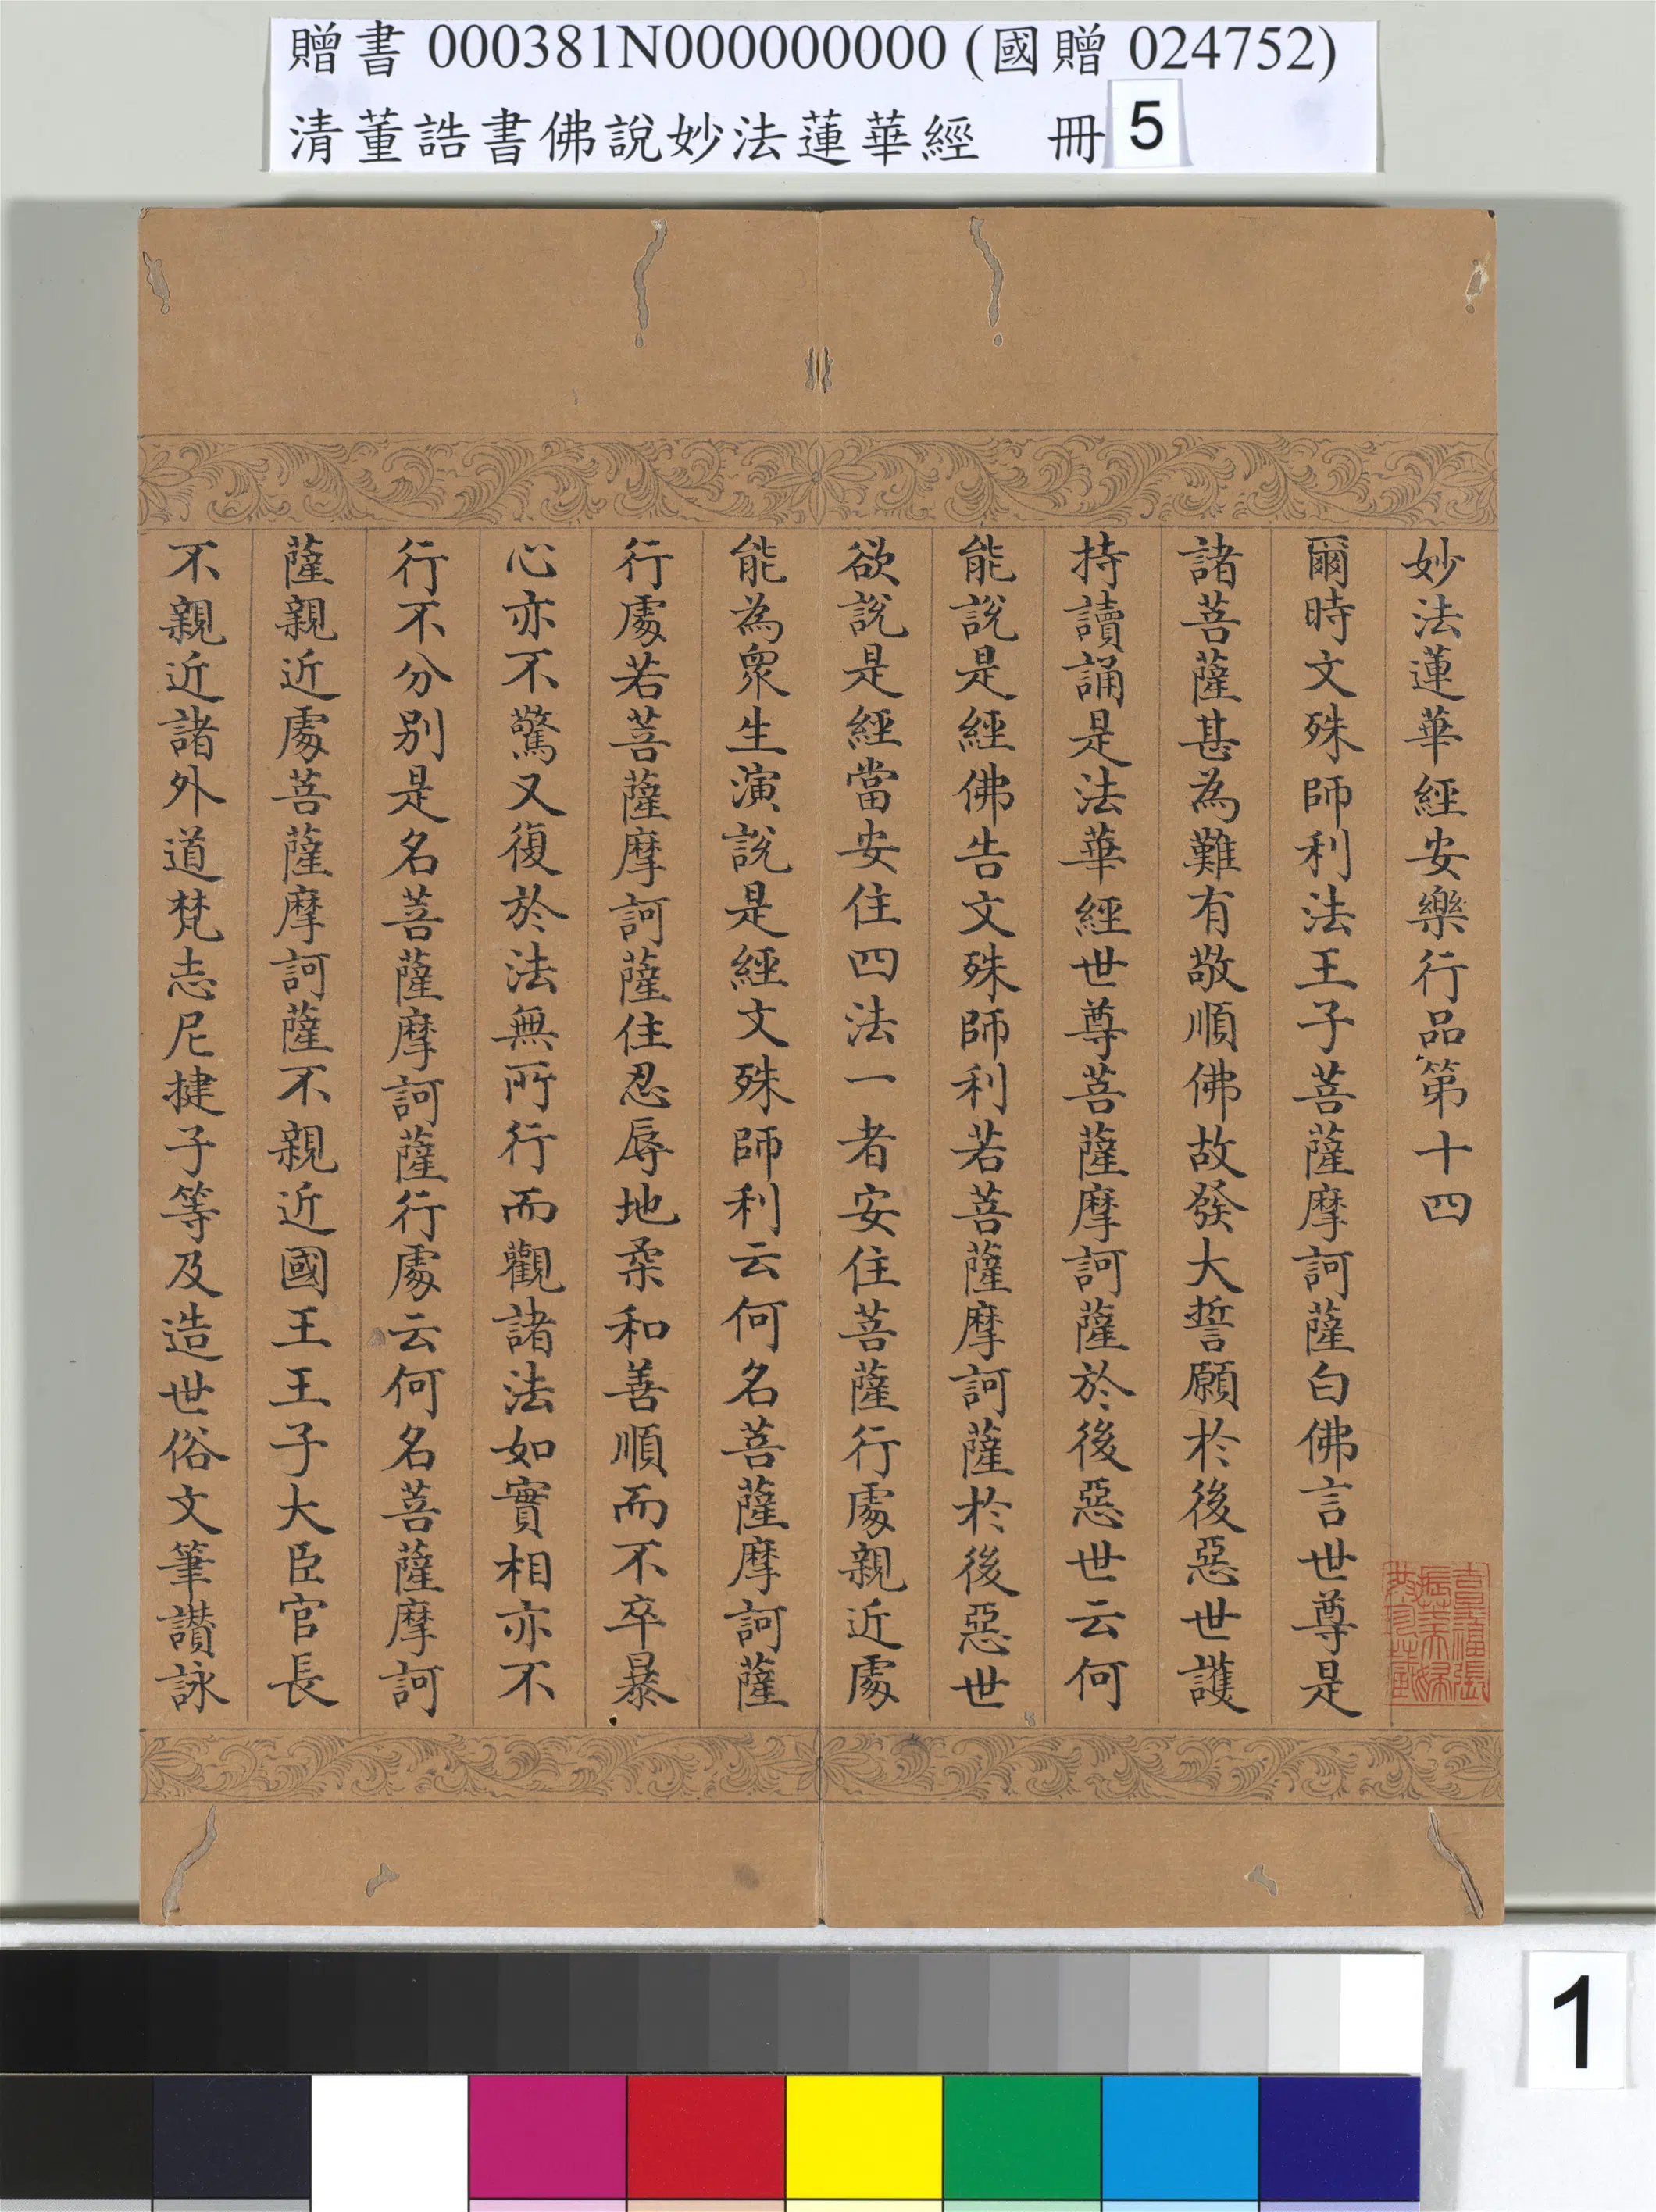 贈書 000381N000000000 (國贈 024752)
清董誥書佛說妙法蓮華經 冊 5
妙法蓮華經安樂行品第十四
爾時文殊師利法王子菩薩摩訶薩白佛言世尊是
諸菩薩甚為難有敬順佛故發大誓願於後惡世護
持讀誦是法華經世尊菩薩摩訶薩於後惡世云何
能說是經佛告文殊師利若菩薩摩訶薩於後惡世
欲說是經當安住四法一者安住菩薩行處親近處
能為眾生演說是經文殊師利云何名菩薩摩訶薩
行處若菩薩摩訶薩住忍辱地柔和善順而不卒暴
心亦不驚又復於法無所行而觀諸法如實相亦不
行不分別是名菩薩摩訶薩行處云何名菩薩摩訶
薩親近處菩薩摩訶薩不親近國王王子大臣官長
不親近諸外道梵志尼揵子等及造世俗文筆讚詠
1